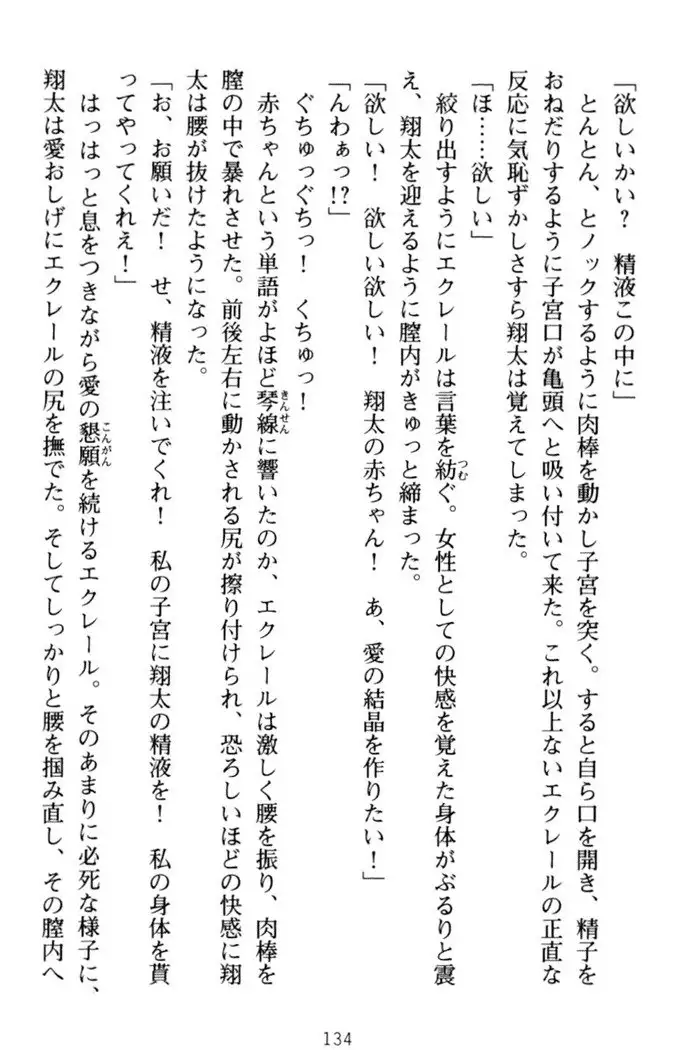 「欲しいかい？　精液この中に」
　とんとん、とノックするように肉棒を動かし子宮を突く。すると自ら口を開き、精子を
おねだりするように子宮口が亀頭へと吸い付いて来た。これ以上ないエクレールの正直な
反応に気恥ずかしさすら翔太は覚えてしまった。
「ほ……欲しい」
　絞り出すようにエクレールは言葉を紡つむぐ。女性としての快感を覚えた身体がぶるりと震
え、翔太を迎えるように膣内がきゅっと締まった。
「欲しい！　欲しい欲しい！　翔太の赤ちゃん！　あ、愛の結晶を作りたい！」
「んわぁっ!?」
　ぐちゅっぐちっ！　くちゅっ！
　赤ちゃんという単語がよほど琴線きんせんに響いたのか、エクレールは激しく腰を振り、肉棒を
膣の中で暴れさせた。前後左右に動かされる尻が擦り付けられ、恐ろしいほどの快感に翔
太は腰が抜けたようになった。
「お、お願いだ！　せ、精液を注いでくれ！　私の子宮に翔太の精液を！　私の身体を貰
ってやってくれえ！」
　はっはっと息をつきながら愛の懇願こんがんを続けるエクレール。そのあまりに必死な様子に、
翔太は愛おしげにエクレールの尻を撫でた。そしてしっかりと腰を掴み直し、その膣内へ
134